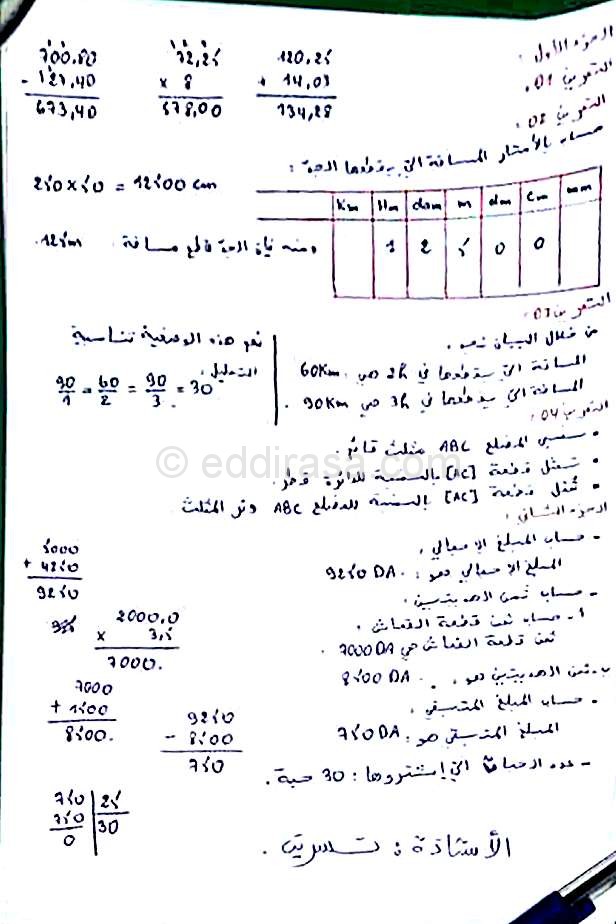 الجزء الأول :
التمرين 01 :
700,80 - 127,40 = 673,40
72,25 × 8 = 578,00
120,25 + 14,03 = 134,28
التمرين 02 :
حساب بالأمتار المسافة التي يقطعها الدبة :
250 × 50 = 12500 cm
Km Hm dam m dm Cm mm
1 2 5 0 0
ومنه فإن الدبة قاطع مسافة 125m.
التمرين 03 :
من خلال البيان نجد :
المسافة التي يقطعها في 2h هي : 60Km
المسافة التي يقطعها في 3h هي 90Km .
نعم هذه الوضعية تناسبية
التعليل :
90/1 = 60/2 = 90/3 = 30
التمرين 04 :
- يسمى المضلع ABC مثلث قائم .
- تمثل قطعة [AC] بالنسبة للدائرة قطر .
- تمثل قطعة [AC] بالنسبة للمضلع ABC وتر المثلث
الجزء الثاني :
- حساب المبلغ الإجمالي :
5000 + 4250 = 9250
المبلغ الإجمالي هو : 9250 DA .
- حساب ثمن الهديتين :
أ - حساب ثمن قطعة القماش :
2000,0 × 3,5 = 7000.
ثمن قطعة القماش هي 7000 DA
ب - ثمن الهديتين هو : 8500 DA .
7000 + 1500 = 8500.
- حساب المبلغ المتبقي :
9250 - 8500 = 750
المبلغ المتبقي هو : 750 DA
- عدد الحبات التي اشتروها : 30 حبة .
750 25
750 30
0
الأستاذة : نسرين .
© eddirasa.com